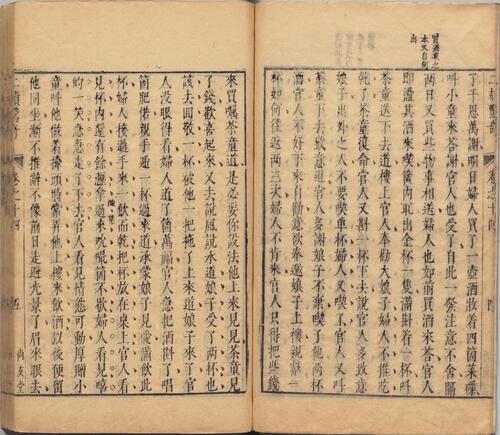 買酒菜之
本又自例
出
了千恩萬謝明日婦人買了一壺酒妝着四箇菜碟
叫小童來荅謝官人官人也受了自此一發注意不舍隔
兩日又買些物事相送婦人也如前買酒來荅官人
即盪其酒來喫篋內取出金杯一隻滿斟着一杯
茶童送下去道樓上官人奉勸大娘子婦人不推吃
乾了茶童復命官人又斟一杯下去說官人多致意
娘子出外之人不要喫單杯婦人又喫了官人又叫
茶童下去致意道官人多謝娘子不棄喫了
官人不好下來自勸意欲奉邀娘子上樓親獻一
杯如何往返兩三次婦人不肯來官人只得把些錢
二續驚奇
卷之十四
五
尚友堂
來買囑茶童道是必要你設法他上來見見茶童見
了錢歡喜起來又去說風說水道娘子受了兩杯也
該去回敬一杯被他一把拖了上來道娘子來了官
人沒眼得看婦人道了箇萬福官人急把酒斟了唱
箇肥偌親手遞一杯過來道承蒙娘子見愛滿飲此
杯婦人接過手來一飲而乾把杯放在桌上官人看
見杯內還有餘瀝拿過來吮嘬箇不歇婦人看見嘻
的一笑急急走了下去官人看見情態可動厚贈小
童叫他做着牽頭時常弄他上樓來飲酒以後便留
他同坐漸不推辭不像前日走避光景了眉來眼去